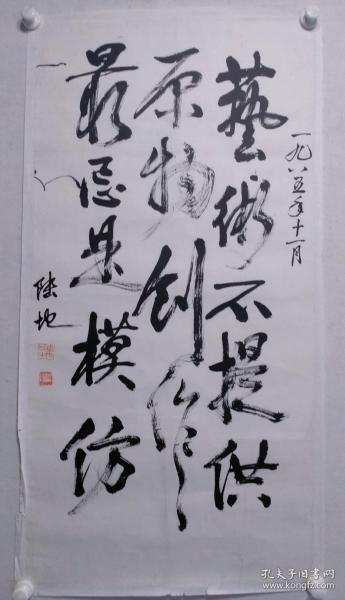 一九八五年十一月
藝術不提供
原物創作
最忌是模仿
陆地
孔夫子旧书网
www.kongfz.com